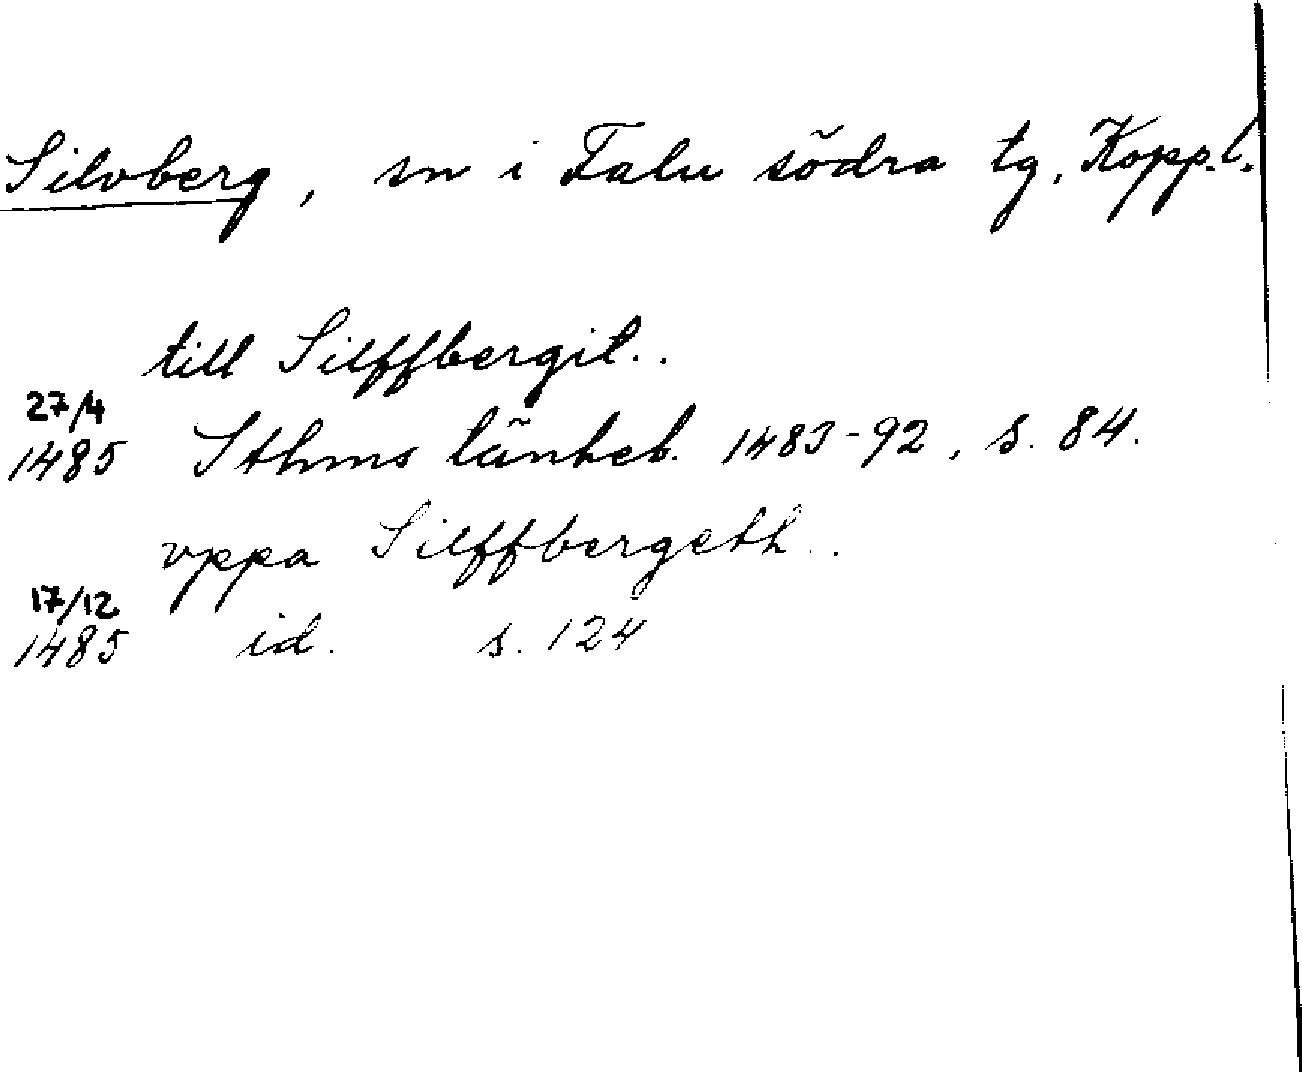 Silvberg, sn i Falu södra tg, Kopp.l.
till Silffbergit..
27/4
1485 Sthms tänkeb. 1483-92, s. 84.
vppa Silffbergeth..
17/12
1485 id. s. 124